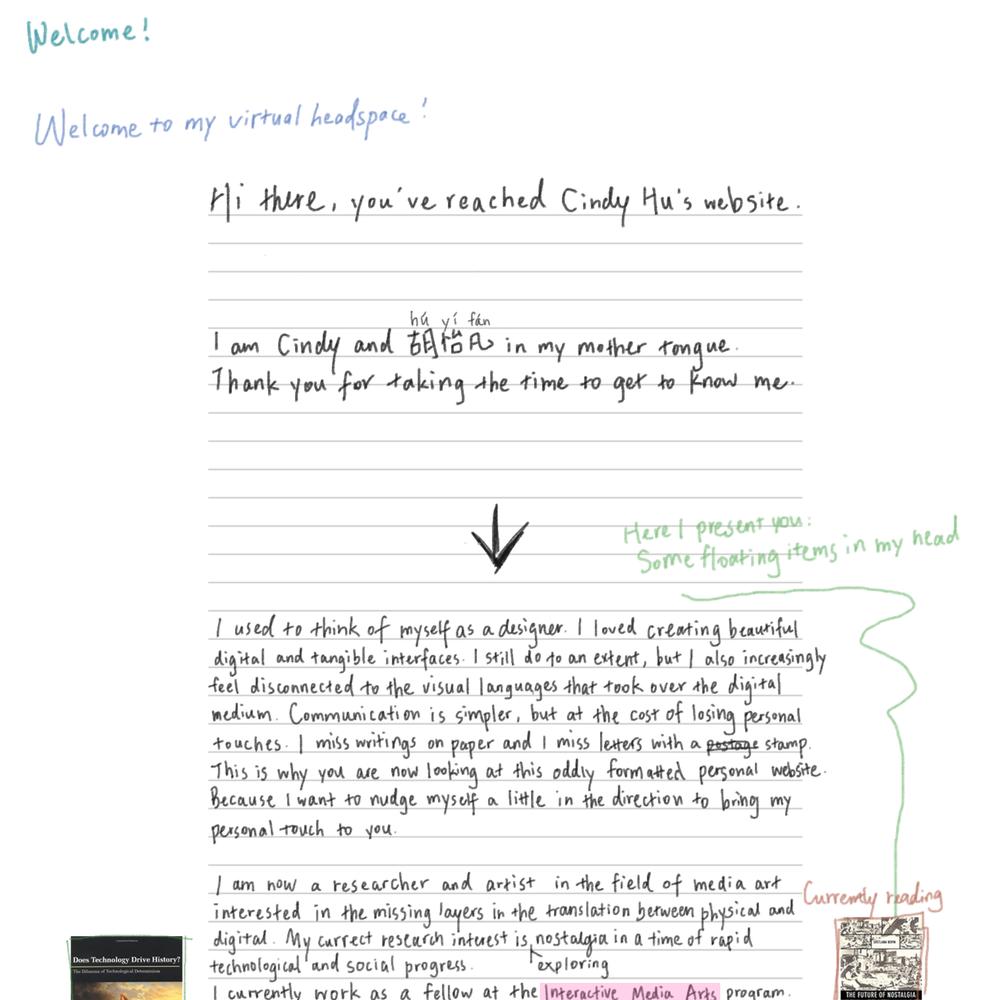 Welcome!
Welcome to my virtual headspace!
Hi there, you've reached Cindy Hu's website.
hú yí fán
I am Cindy and 胡怡凡 in my mother tongue.
Thank you for taking the time to get to know me.
Here I present you:
Some floating items in my head
I used to think of myself as a designer. I loved creating beautiful
digital and tangible interfaces. I still do to an extent, but I also increasingly
feel disconnected to the visual languages that took over the digital
medium. Communication is simpler, but at the cost of losing personal
touches. I miss writings on paper and I miss letters with a postage stamp.
This is why you are now looking at this oddly formatted personal website.
Because I want to nudge myself a little in the direction to bring my
personal touch to you.
I am now a researcher and artist in the field of media art
interested in the missing layers in the translation between physical and
digital. My currect research interest is nostalgia in a time of rapid
technological and social progress. exploring
I currently work as a fellow at the Interactive Media Arts program.
Currently reading
Does Technology Drive History?
The Dilemma of Technological Determinism
SVETLANA BOYM
THE FUTURE OF NOSTALGIA